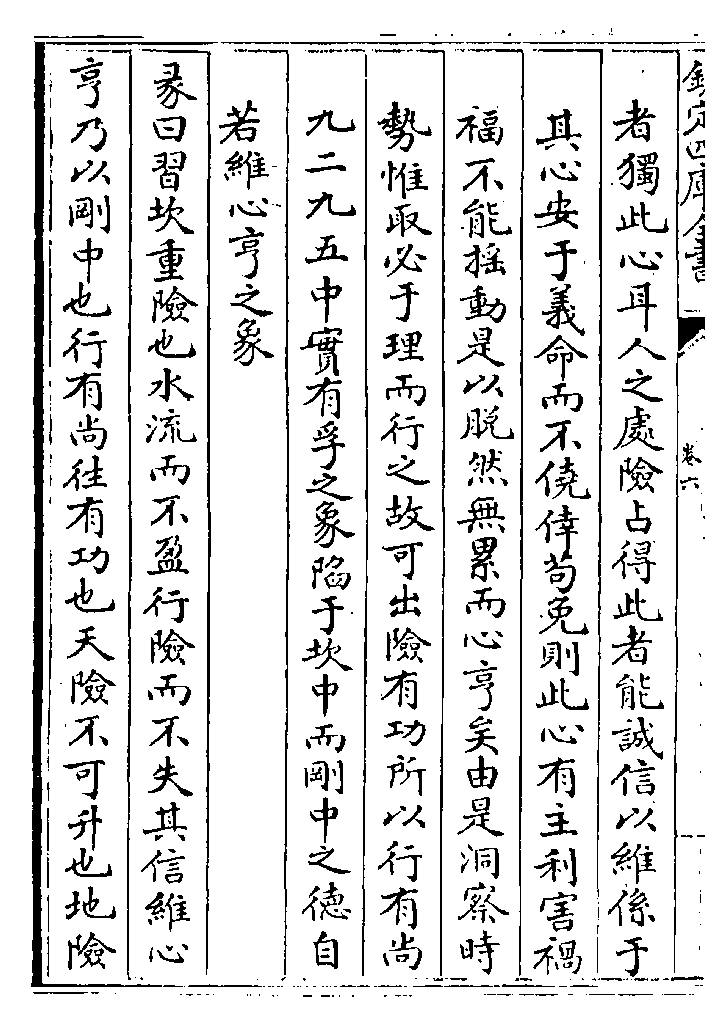 欽定四庫全書
卷六
者獨此心耳人之處險占得此者能誠信以維係于
其心安于義命而不僥倖茍免則此心有主利害禍
福不能揺動是以脫然無累而心亨矣由是洞察時
勢惟取必于理而行之故可出險有功所以行有尚
九二九五中實有孚之象陷于坎中而剛中之德自
若維心亨之象
彖曰習坎重險也水流而不盈行險而不失其信維心
亨乃以剛中也行有尚往有功也天險不可升也地險